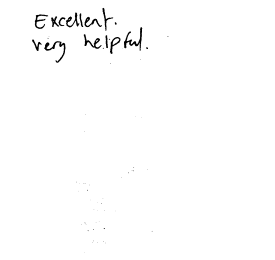 Excellent.
very helpful.